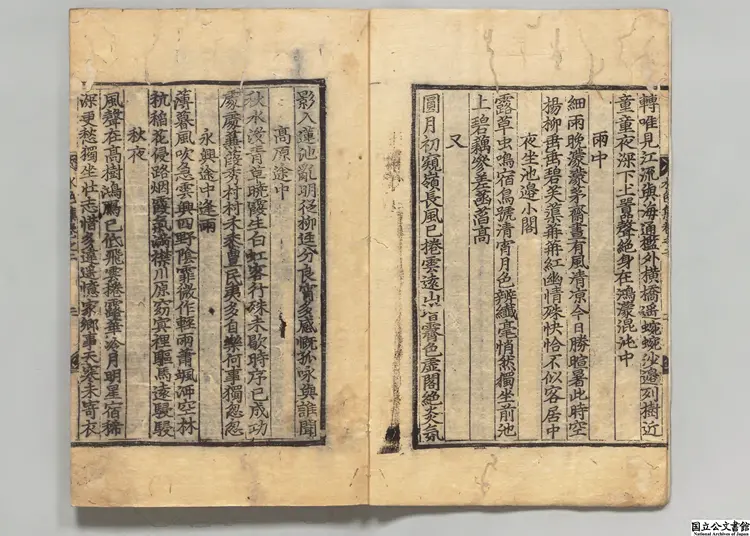 轉唯見江流與海通檻外橫橋遥蜿蜿沙邊列樹近
童童夜深下上嚻聲絕身在鴻濛混沌中
雨中
細雨晚濛濛茅齋晝有風清凉今日勝暄暑此時空
楊柳冉冉碧芙蕖苒苒紅幽情殊快恰不似客居中
夜坐池邊小閣
露草虫鳴宿鳥號清宵月色辨纖毫悄然獨坐前池
上碧藕參差菡萏高
又
圓月初窺嶺長風已捲雲遠山皆霽色虛閣絕炎氛
影入蓮池亂明從柳逕分良宵多感慨孤咏與誰聞
高原途中
秋水没青草曉霞生白虹客行殊未歇時序已成功
處處蒹葭秀村村禾黍豊民夷多自樂何事獨忽忽
永興途中逢雨
薄暮風吹急雲興四野陰霏微作輕雨蕭颯滿空林
秔稻花侵路烟霞氣滿襟川原窈窕裡驅馬遠駸駸
秋夜
風聲在高樹鴻鴈已低飛雲捲露華冷月明星宿稀
深更愁獨坐壯志惜多違遥憶家鄉事天寒未寄衣
国立公文書館
National Archives of Japan